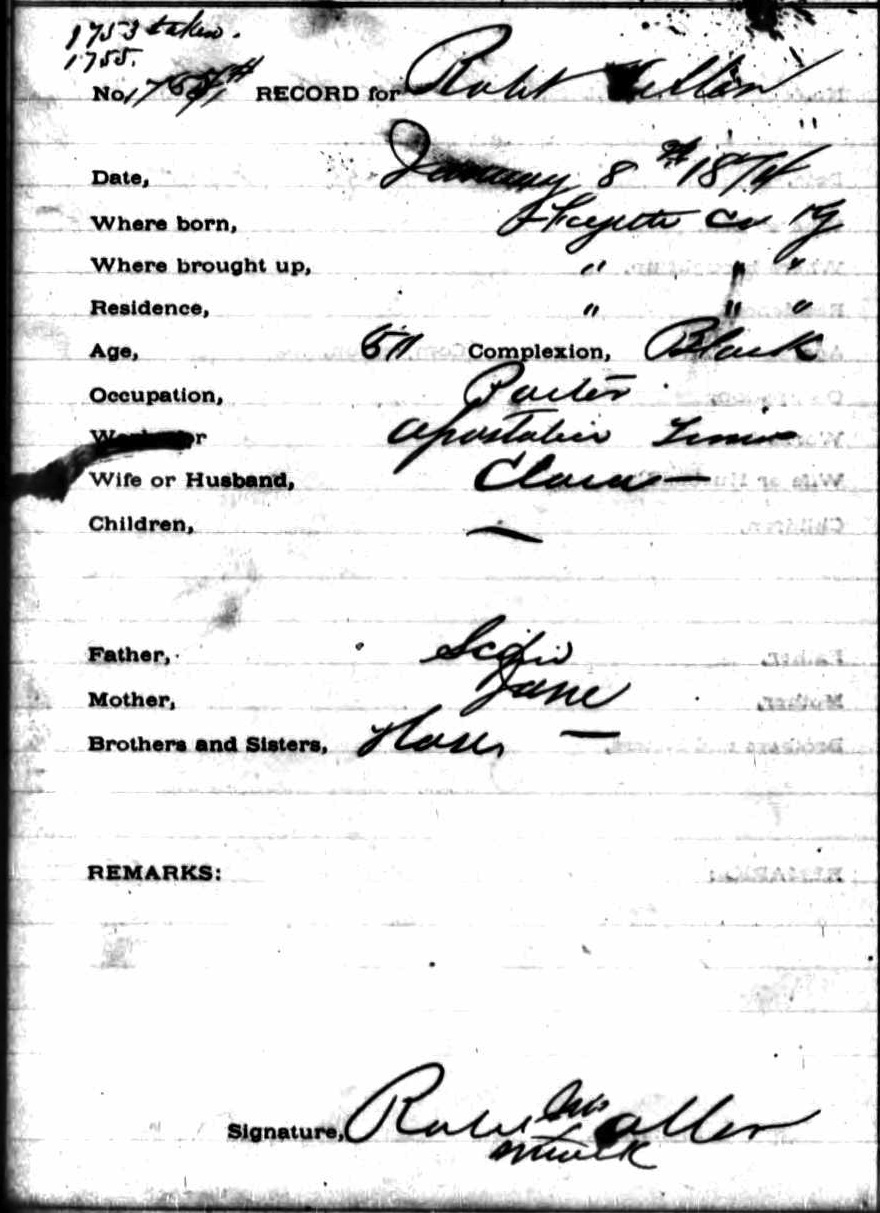 1753 taken.
1755.
No, RECORD for Robt Allen
Date, January 8th 1874
Where born, Fayette Co Ky
Where brought up, " " "
Residence, " " "
Age, Complexion, Black
Occupation, Porter
Wife or Husband, Clara —
Children, —
Father, Scipio
Mother, Jane
Brothers and Sisters, —
REMARKS:
his
Signature, Robt Allen
mark